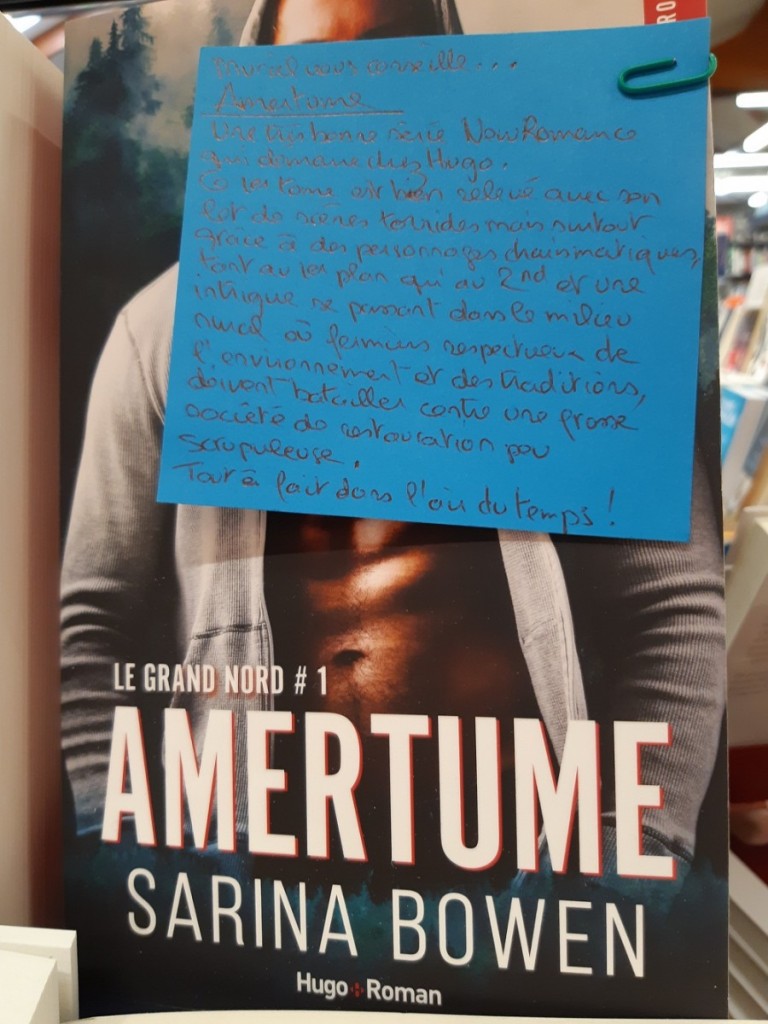 RO
Muriel vous conseille...
Amertume
Une très bonne série New Romance
qui démarre chez Hugo.
Ce 1er tome est bien relevé avec son
lot de scènes torrides mais surtout
grâce à des personnages charismatiques,
tant au 1er plan qu'au 2nd et une
intrigue se passant dans le milieu
rural où fermiers respectueux de
l'environnement et des traditions,
doivent batailler contre une grosse
société de restauration peu
scrupuleuse.
Tout à fait dans l'air du temps !
LE GRAND NORD # 1
AMERTUME
SARINA BOWEN
Hugo Roman